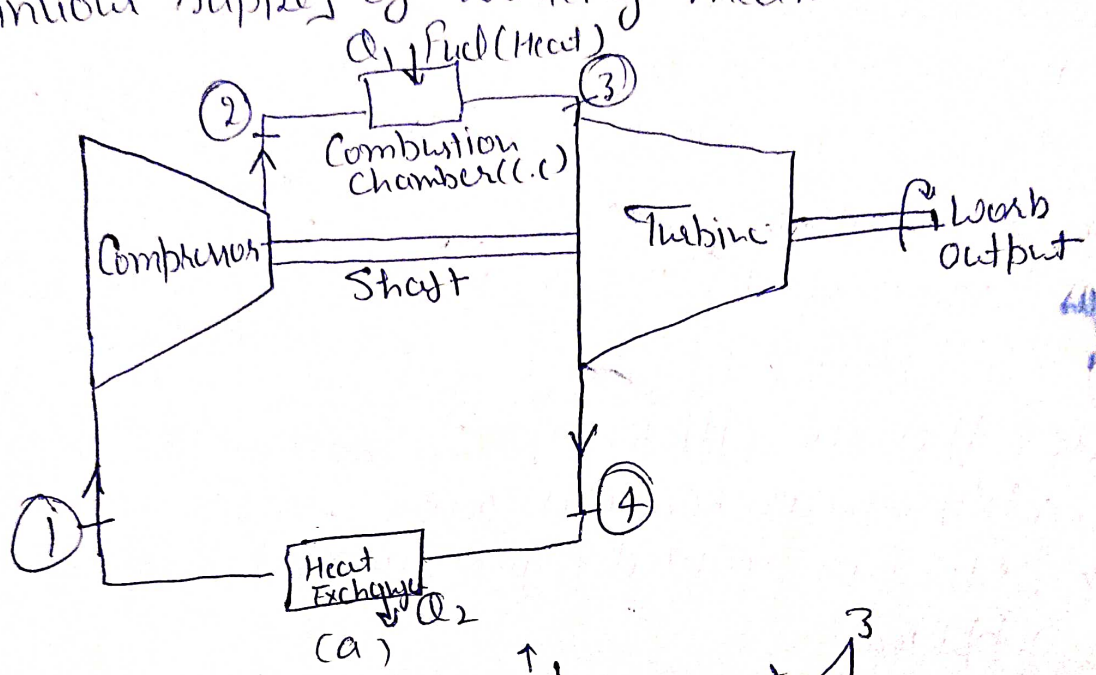 supply of
Q1 Fuel (Heat)
2
3
Combustion
Chamber (C.C)
Compressor
Shaft
Turbine
Work
Output
1
4
Heat
Exchanger
Q2
(a)
3